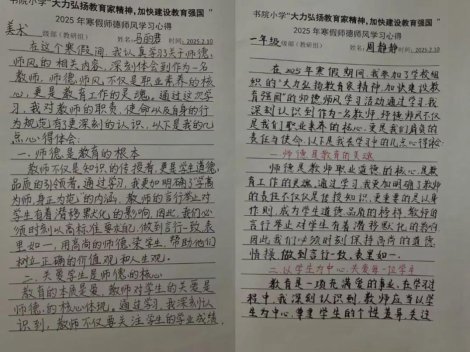 书院小学“大力弘扬教育家精神,加快建设教育强国”
2025年寒假师德师风学习心得
美术 级部（教研组） 时间：2025.2.10
在这个寒假间，我认真学习关于师德，
师风的相关内容，深刻体会到作为一名
教师，师德师风不仅是职业素养的核
心，更是教育工作的灵魂。通过这次学
习，我对教师的职责、使命以及自身的行
为规范有了更深刻的认识，以下是我的几
点心得体会：
一、师德是教育的根本
教师不仅是知识的传授者，更是学生道德
品质的引领者，通过学习，我更加明确了“学高
为师，身正为范”的内涵，教师的言行举止对
学生有着潜移默化的影响，因此，我们必
须时刻以高标准要求自己，做到言行一致，表
里如一，用高尚的师德感染学生，帮助他们
树立正确的价值观和人生观。
二、关爱学生是师德的核心
教育的本质是爱，教师对学生的关爱是
师德的核心体现。通过学习，我深刻认
识到，教师不仅要关注学生的学业成绩，
书院小学“大力弘扬教育家精神,加快建设教育强国”
2025年寒假师德师风学习心得
一年级 级部（教研组） 周静静 时间：2025.2.10
在2025年寒假期间，我参加了学校组
织的“大力弘扬教育家精神，加快建设教
育强国”的师德师风学习活动通过学习，我
深刻认识到作为一名教师，师德师风不仅
是我们职业素养的核心，更是我们肩负的
责任与使命，以下是我本次学习的几点心得体会：
一、师德是教育的灵魂
师德是教师职业道德的核心，是教
育工作的灵魂，通过学习，我更加明确了教师
的责任不仅仅是传授知识，更重要的是以身
作则，成为学生道德品质的榜样，教师的
言行举止对学生有着潜移默化的影响
因此我们必须时刻保持高尚的道德
情操，做到言行一致，表里如一。
二、以学生为中心，关爱每一位学生
教育是一项充满爱的事业，在学习过
程中，我深刻认识到，教师应当以学
生为中心，尊重学生的个性差异，关注